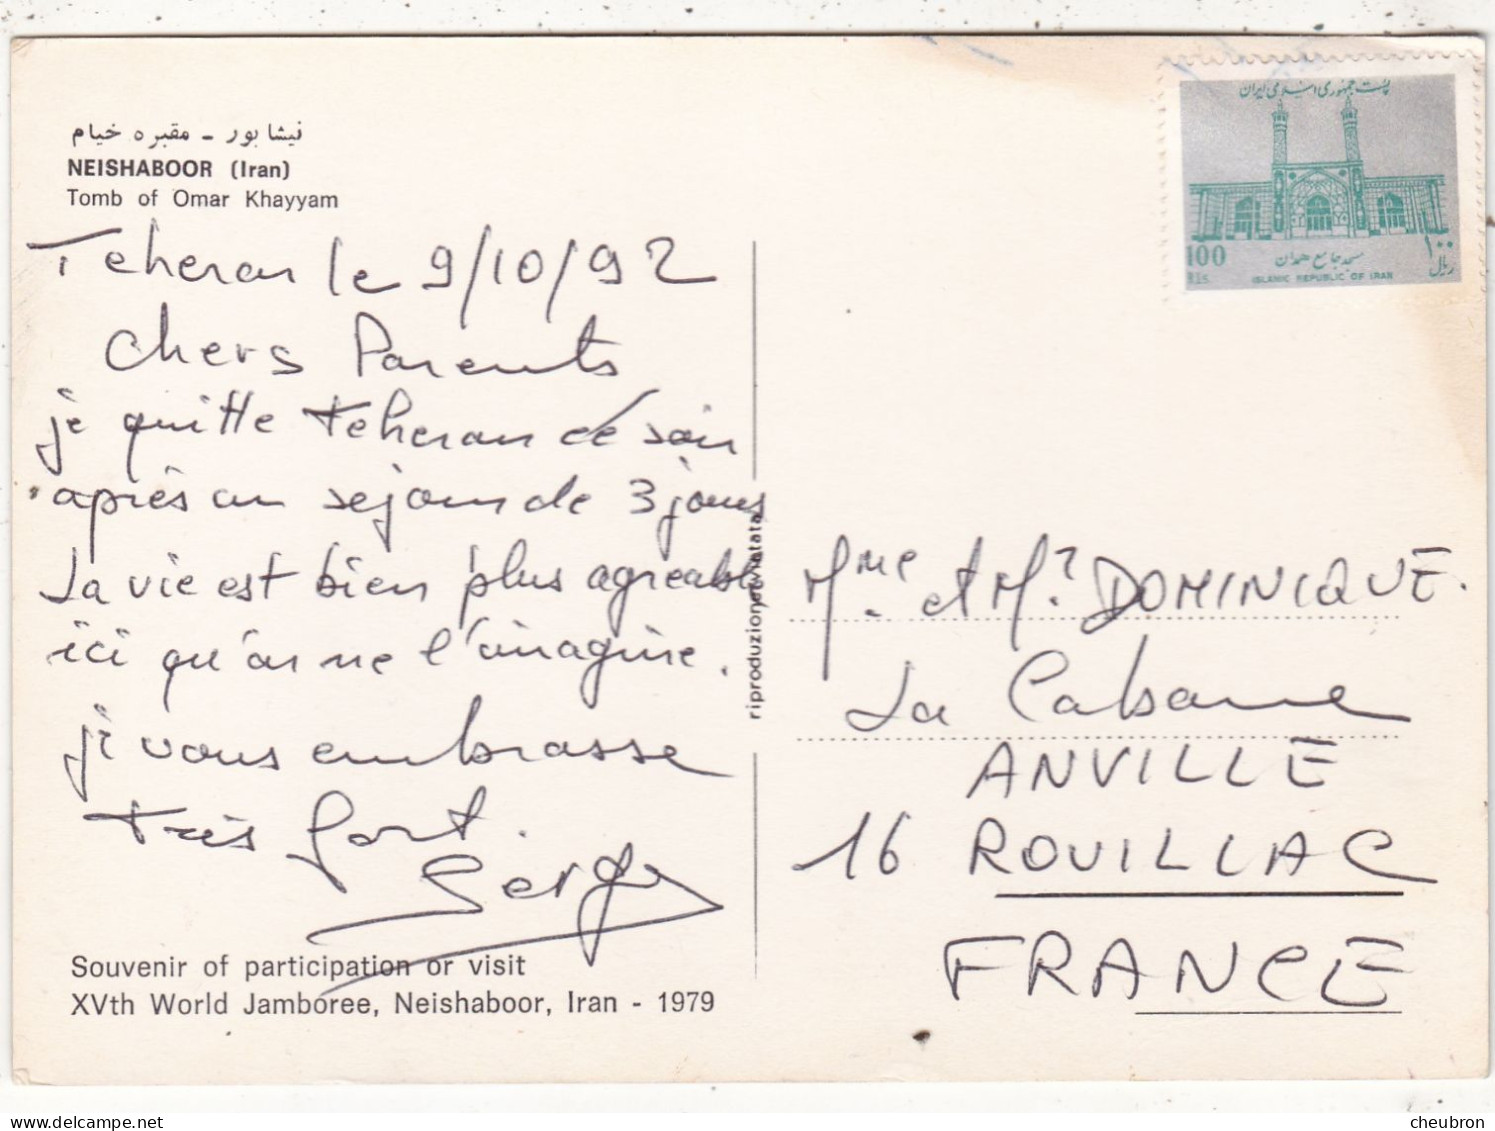 نیشابور - مقبره خیام
NEISHABOOR (Iran)
Tomb of Omar Khayyam
Teheran le 9/10/92
Chers Parents
je quitte Teheran ce soir
après un séjour de 3 jours
La vie est bien plus agreable
ici qu'on ne l'imagine.
je vous embrasse
très fort.
Serge
Souvenir of participation or visit
XVth World Jamboree, Neishaboor, Iran - 1979
riproduzione vietata
پست جمهوری اسلامی ایران
100
Rls.
مسجد جامع همدان
۱۰۰
ریال
ISLAMIC REPUBLIC OF IRAN
Mme et Mr DOMINIQUE.
La Cabane
ANVILLE
16 ROUILLAC
FRANCE
cheubron.com